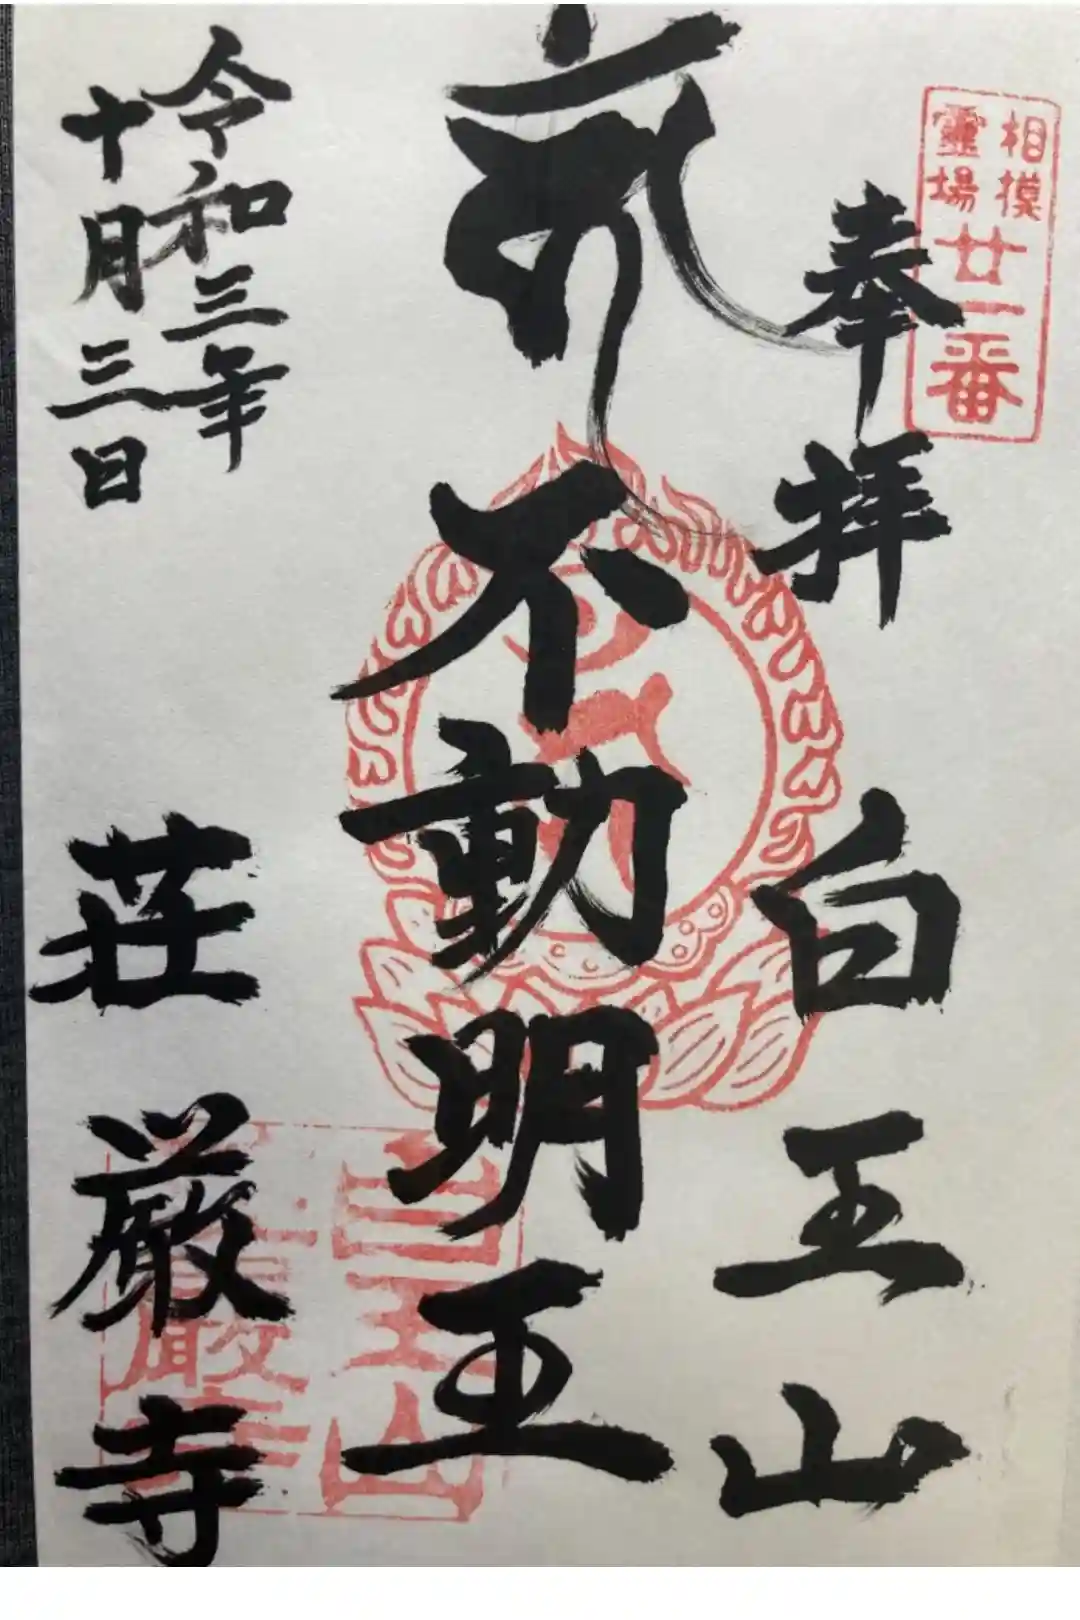 相摸
霊場
廿一番
奉拝
白王山
不動明王
白王山
荘厳寺
令和三年
十月三日